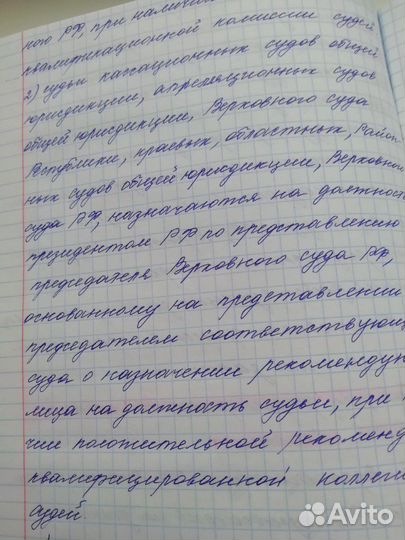 ного РФ, при налич
квалификационной комиссии судей
2) судьи кассационных судов общей
юрисдикции, апелляционных судов
общей юрисдикции, Верховного суда
Республики, краевых, областных, Район-
ных судов общей юрисдикции, Верховно
суда РФ, назначаются на должност
президентом РФ по представлению
председателя Верховного суда РФ,
основанному на представлении
председателем соответствующ
суда о назначении рекомендуе
лица на должность судьи, при
чии положительной рекоменд
квалифицированной коллег
судей.
Avito